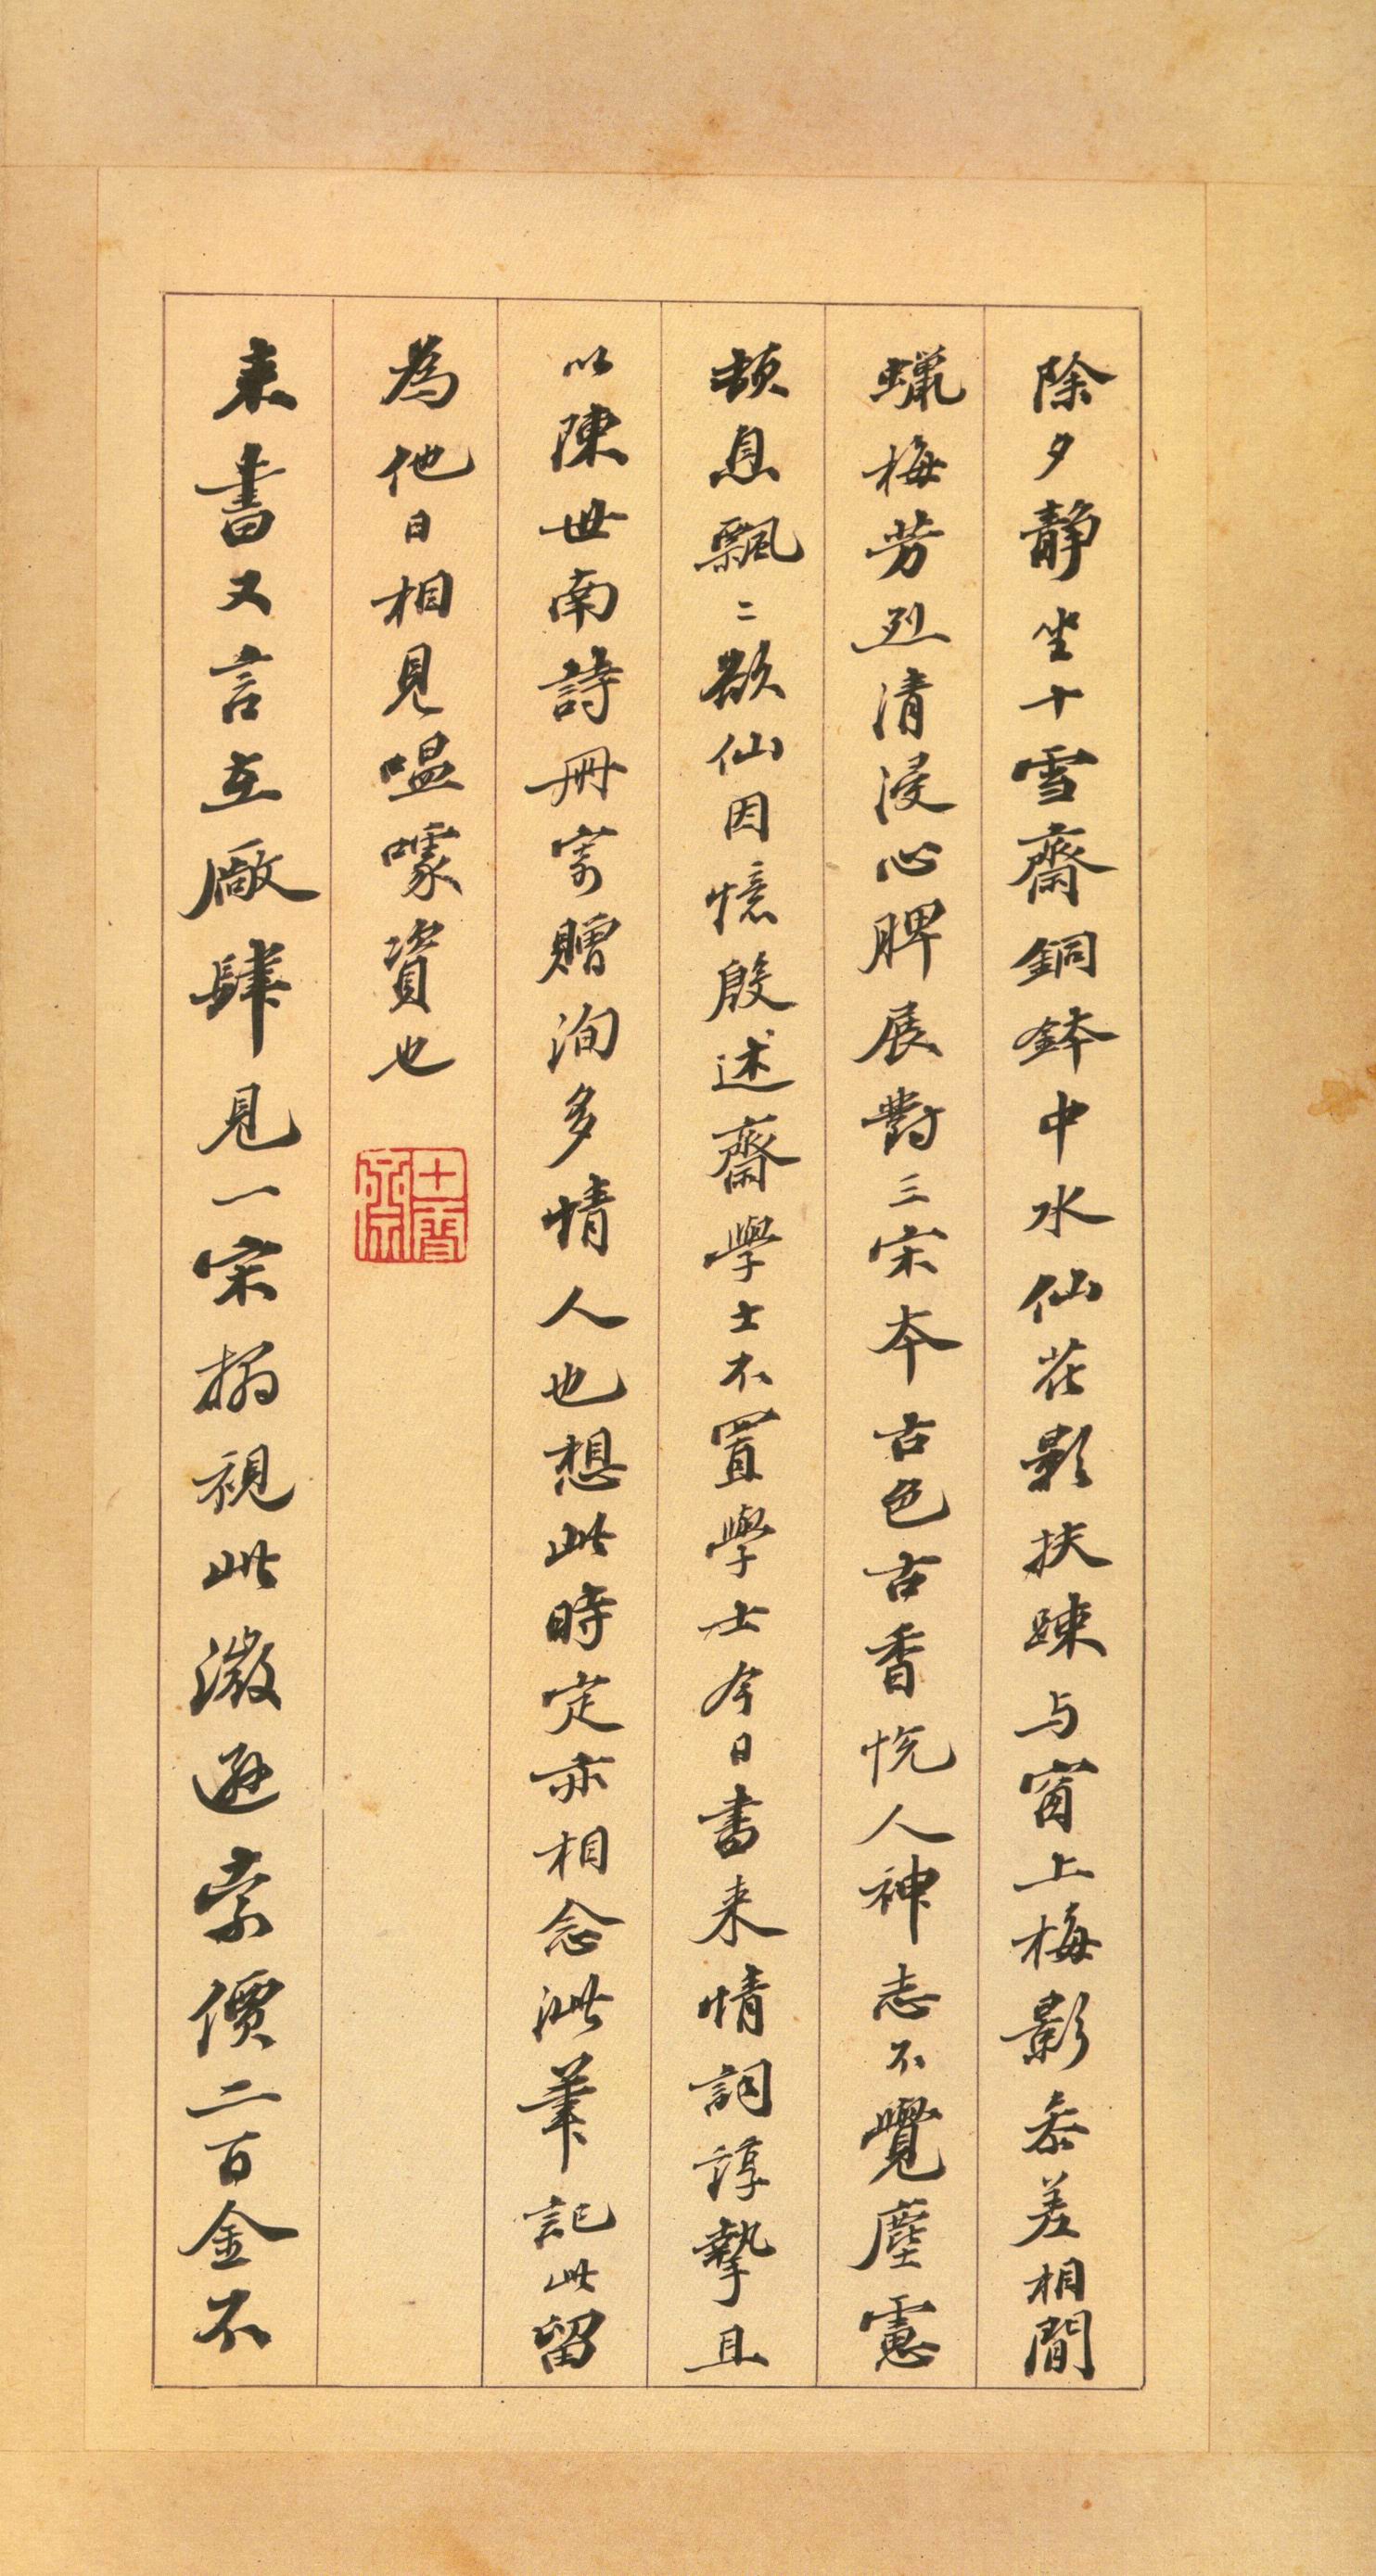 除夕靜坐十雪齋銅鉢中水仙花影扶踈与窗上梅影叅差相間
蠟梅芳烈清浸心脾展對三宋本古色古香怳人神志不覺塵慮
頓息飄二欲仙因憶殷述齋學士不置學士今日書来情詞諄摯且
以陳世南詩冊寄贈洵多情人也想此時定亦相念泚筆記此留
為他日相見嗢噱資也
十雪
来書又言在廠肆見一宋搨視此微遜索價二百金不